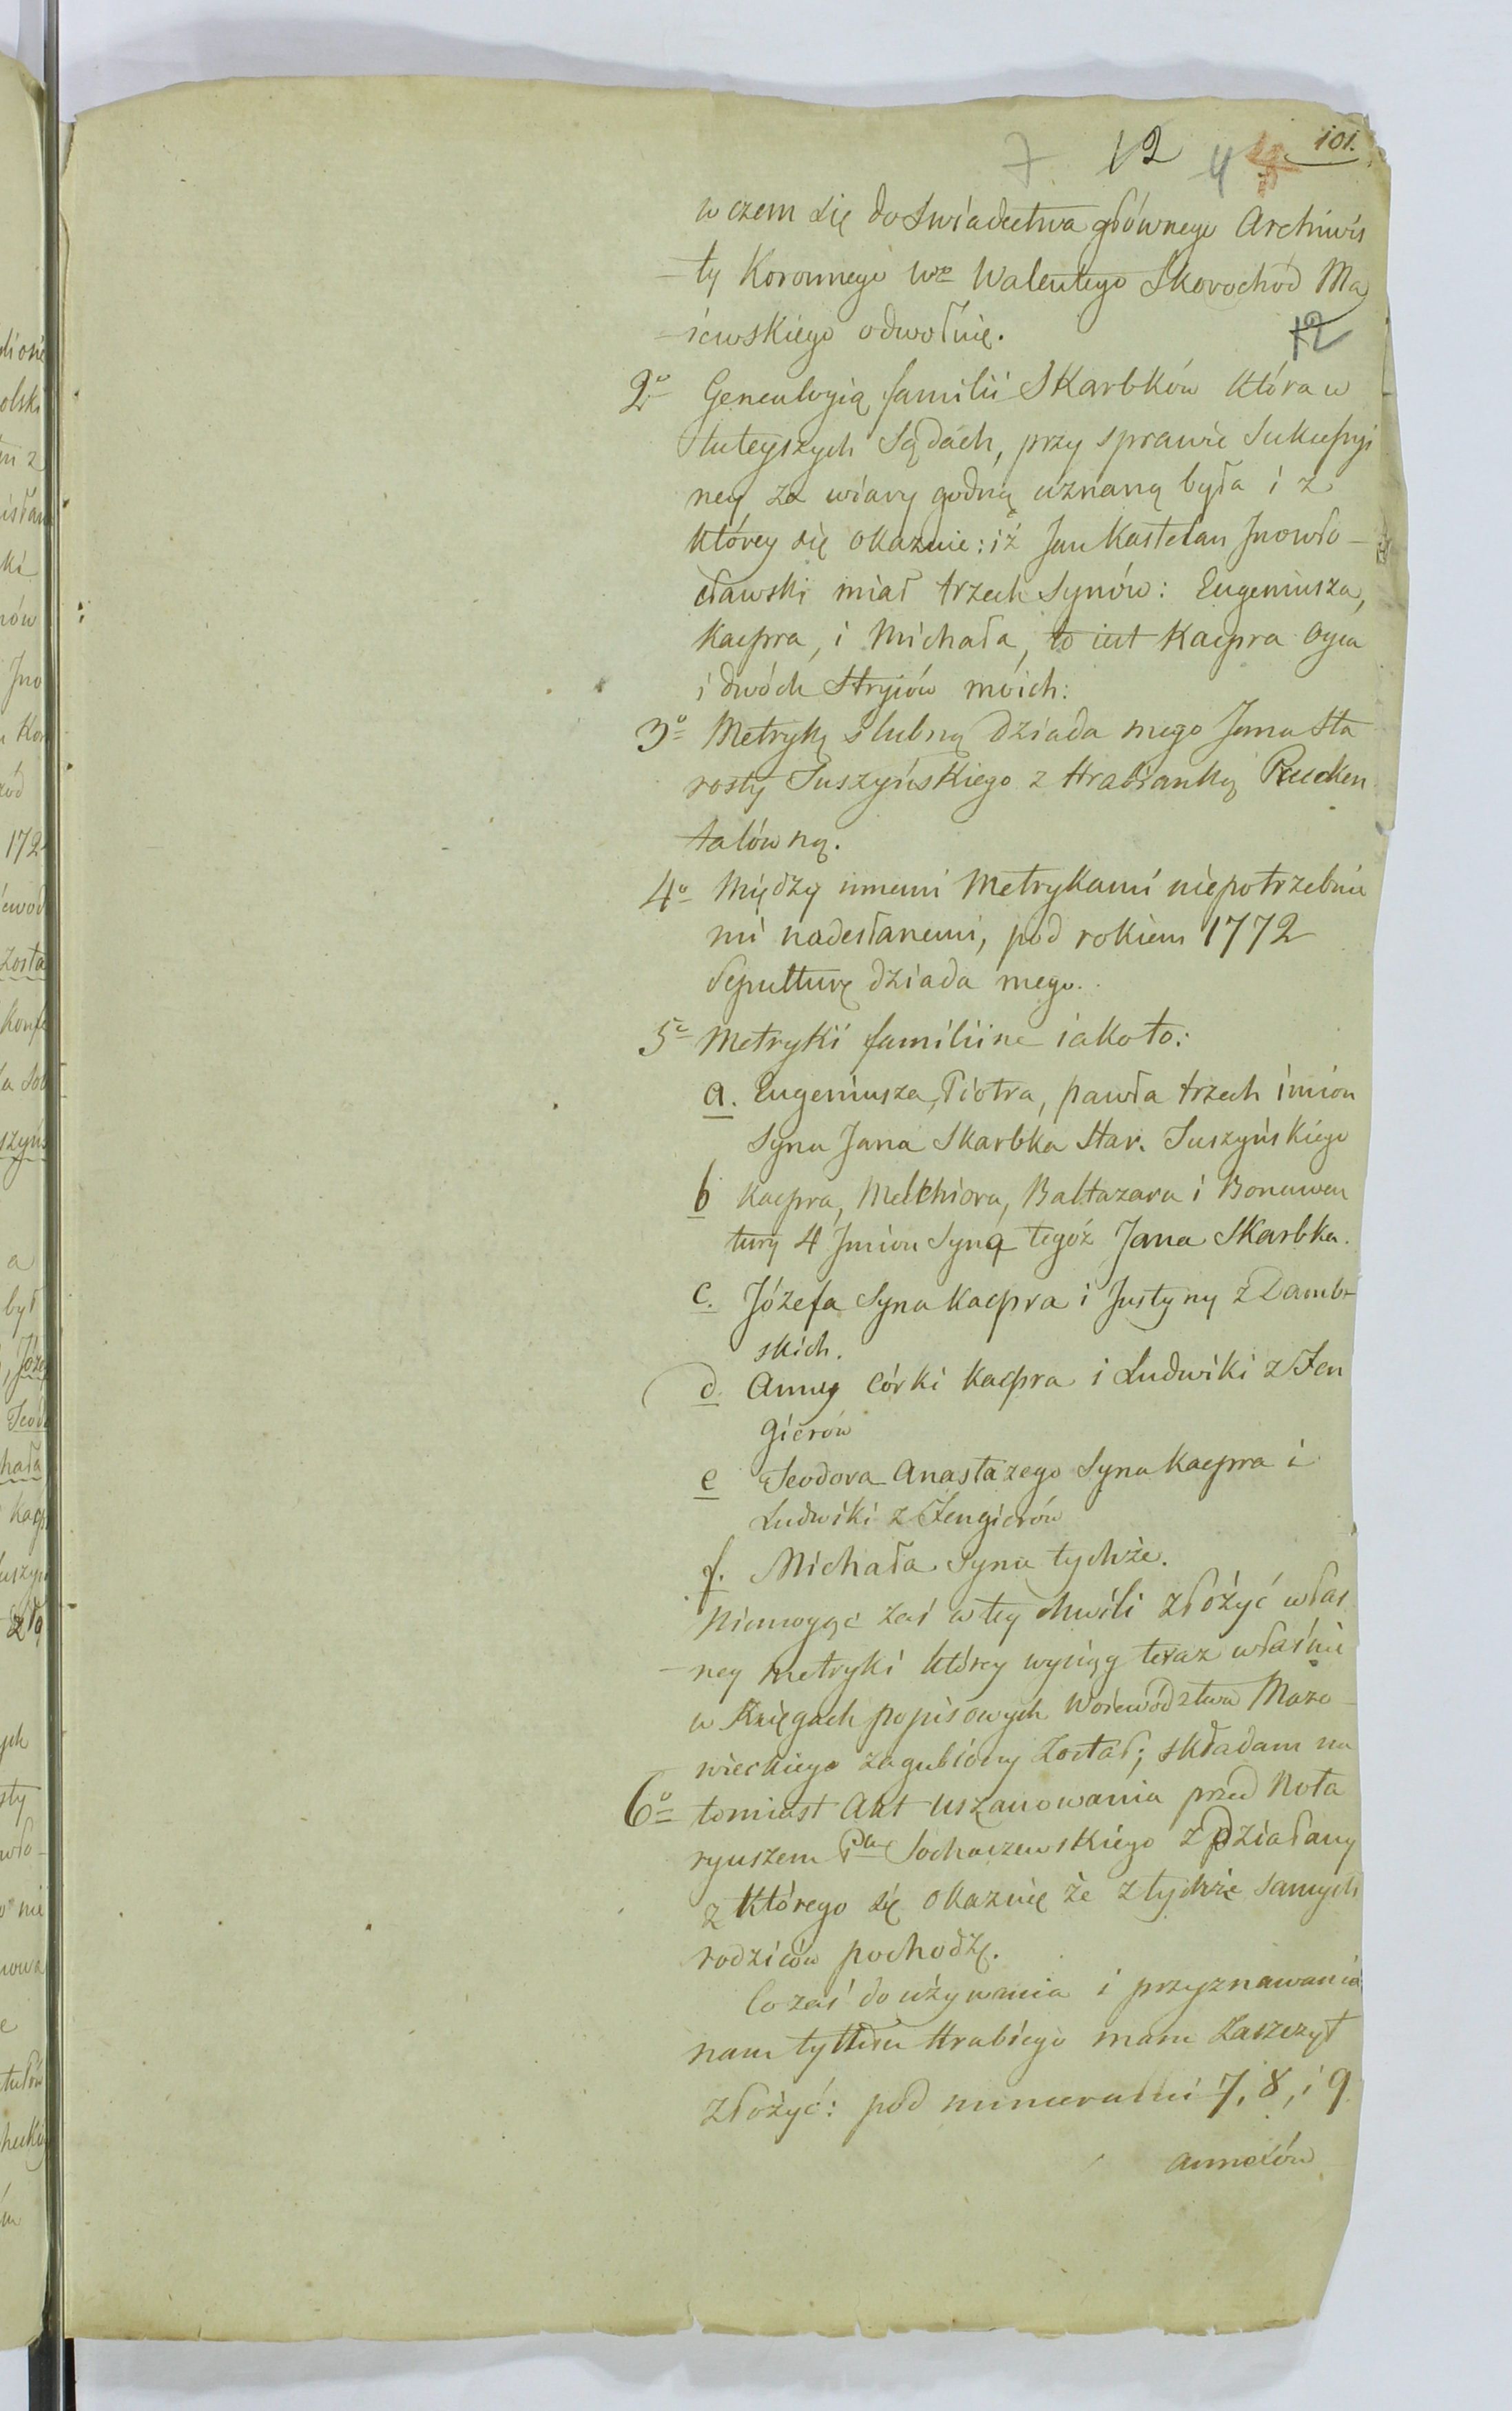 7 12 4 101.
w czem się do Swiadectwa głównego Archiwis
-ty Koronnego Wo Walentego Skorochod Ma
-iewskiego odwołuię.
12
2o Genealogią familii Skarbków która w
tuteyszych Sądach, przy sprawie Sukcessyi
ney za wiary godną uznaną była i z
którey się okazuie: iż Jan Kasztelan Jnowło-
cławski miał trzech Synów: Eugeniusza,
Kacpra, i Michała, to iest Kacpra Oyca
i dwóch Stryiów moich:
3o Metrykę slubną Dziada mego Jana Sta
rosty Suszyńskiego z Hrabianką Rucken
talówną.
4o Między innemi Metrykami niepotrzebnie
mi nadesłanemi, pod rokiem 1772
Sepulturę dziada mego.
5o Metryki familiine iako to:
a. Eugeniusza, Piotra, pawła trzech imion
Syna Jana Skarbka Star. Suszyńskiego
b Kacpra, Melchiora, Baltazara i Bonawen
tury 4 Jmion Syna tegóż Jana Skarbka.
c. Józefa Syna Kacpra i Justyny z Damb-
skich.
d. Anny Córki Kacpra i Ludwiki z Fen
gierów
e Teodora Anastazego Syna Kacpra i
Ludwiki z Fengierów
f. Michała Syna tychże.
Niemogąc zaś w tey chwili złożyć włas
-ney metryki którey wyciąg teraz właśnie
w Xięgach popisowych Woiewództwa Mazo-
wieckiego zagubiony został; składam na
6o tomiast Akt uszanowania przed Nota
ryuszem Ptu Sochaczewskiego zdziałany
z którego się okazuię że z tychże samych
rodziców pochodzę.
Co zaś do używania i przyznawania
nam tytułu Hrabiego mam zaszczyt
złożyć: pod numerami 7, 8, i 9
annexów